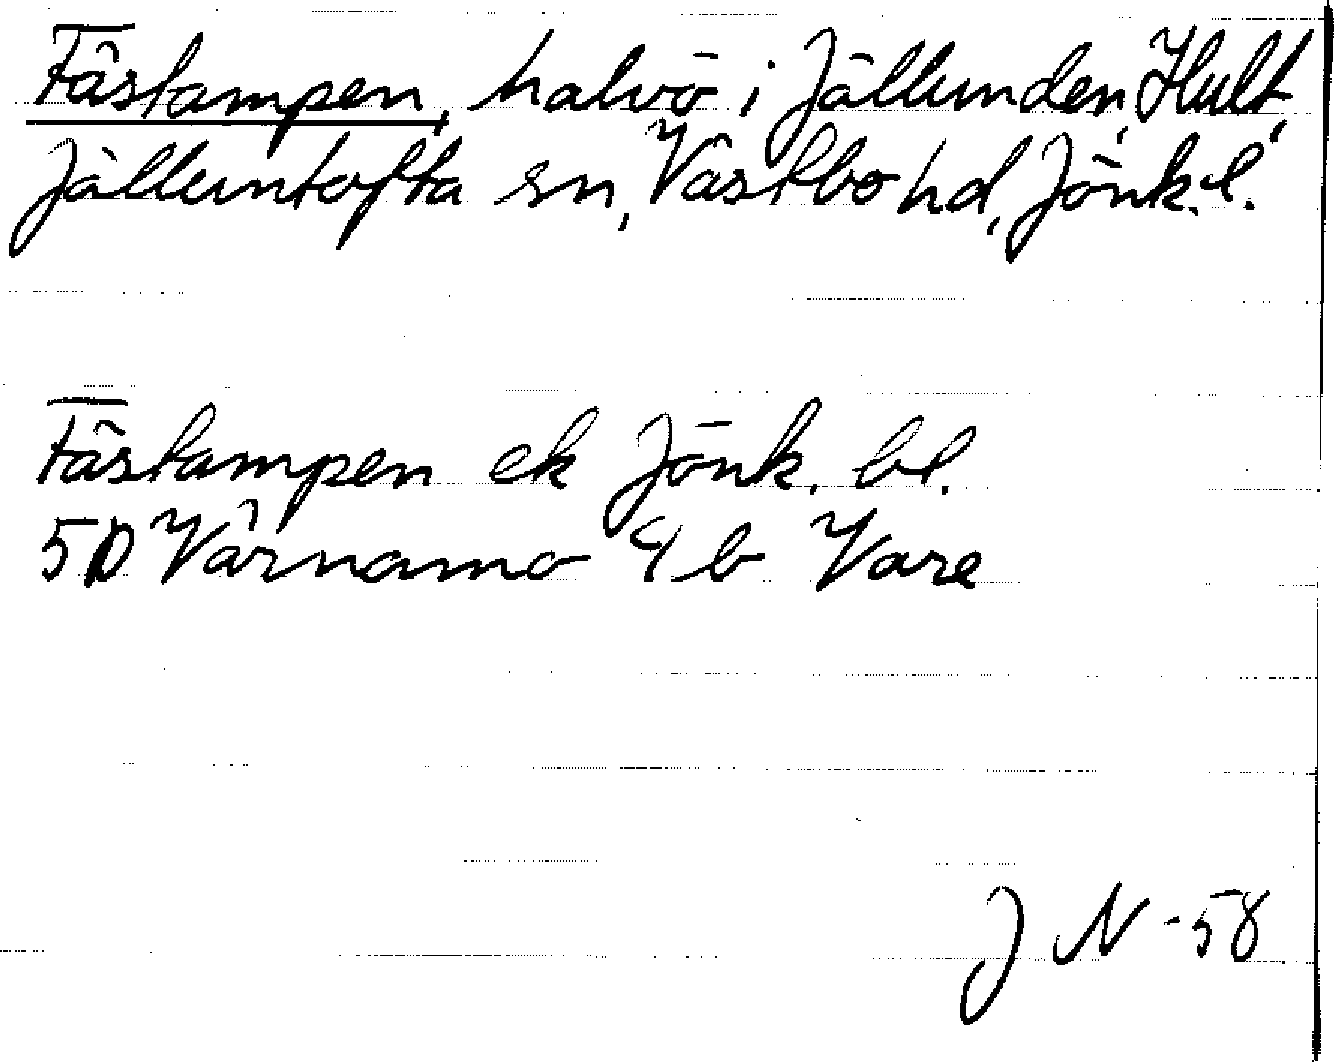 Fästampen, halvö i Jällunden, Hult,
Jälluntofta sn, Västbo hd, Jönk.l.
Fästampen ek Jönk. bl.
5D Värnamo 9b Vare
JN -58